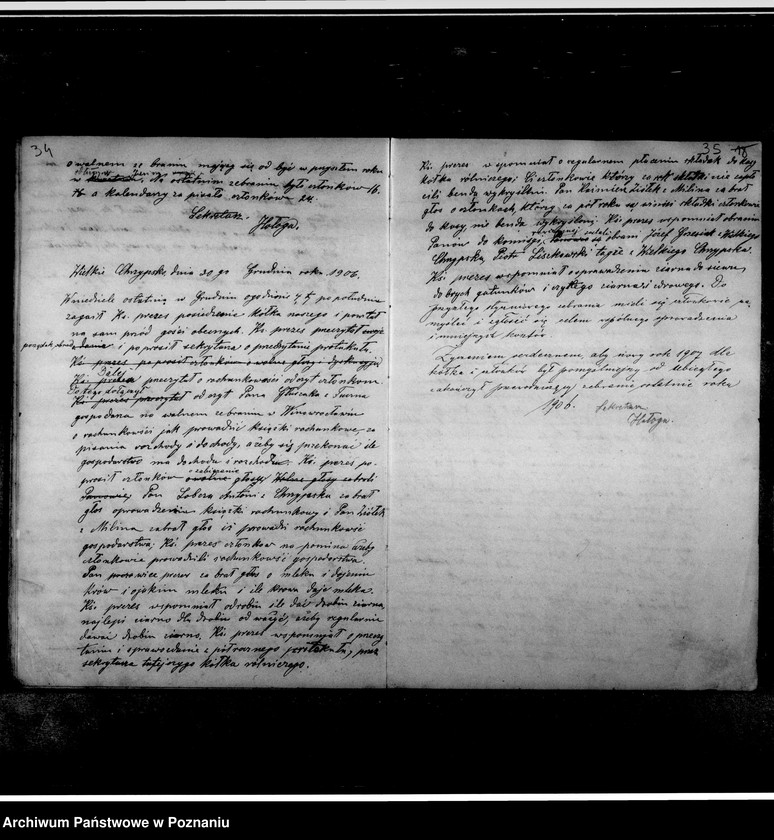 34
o walnem ze braniu mającą się od być w przyszłem roku
w Na ostatnim zebraniu było członków 16.
a kalendarzy za pisało członków 24.
Sekretarz.
Hołoga.
Wielkie Chrzypsko, dnia 30go Grudnia roku 1906.
W niedziele ostatnią w Grudniu o godzinie 4 po południu
zagaił Ks. prezes posiedzenie kółka naszego i powitał
na sam przód gości obecnych. Ks. prezes przeczytał
porządek i po prosił sekrytarza o przeczytanie protukułu.
Ks. prezes po prosił członków o wolne głosy i dyskusyją
Dalej
Ks. prezes przeczytał o rachunkowości odczyt członkom.
Ks. prezes przeczytał odczyt Pana
gospodarza na walnem zebraniu w Winowrocławiu
o rachunkowści jak prowadzić książki rachunkowe, za
pisania rozchody i dochody, ażeby się przekonać ile
gospodarstwo ma dochodu i rozchodu. Ks. prezes po
o zabieranie
prosił członków wolne głosy Wolne głosy zabrali
Panowie, Pan Lobera Antóni z Chrzypska zabrał
głos o prowadzeniu książki rachunkowej i Pan Ziółek
z Milina zabrał głos iż prowadzi rachunkowość
gospodarstwa; Ks. prezes członków na pomina ażeby
członkowie prowadzili rachunkowść gospodarstwa.
Pan prezes za brał głos o mleku i dojeniu
krów i o jakim mleku i ile krowa daje mleka.
Ks. prezes wspomniał o drobiu ile dać drobiu ziarna,
najlepi ziarno dla drobiu od ważyć, ażeby regularnie
dawać drobiu ziarno. Ks. prezes wspomniał o przeczy
taniu i sprawozdanie z półrocznego protukułu, przez
sekrytarza tutejszego kółka rólniczego.
35
Ks. prezes wspomniał o regularnem płaceniu składek do kasy
kółka rólniczego; Ci członkowie którzy za rok składki nie zapła
cili bendą wykryślini. Pan Kaźmierz Ziółek z Milina za brał
głos o członkach, którzy za pół roku są winni składki członkowie
do kasy, nie bendą wykryśloni. Ks. prezes wspomniał obraniu
Panów do komisyi, obrani Józef z Wielkiego
Chrzypska, Piotr Liszkowski także z Wielkiego Chrzypska.
Ks. prezes wspomniał o sprowadzeniu ziarna do siewu,
dobrych gatunków i czystego ziarna i zdrowego. Do
przyszłego styczniowego zebrania mieli się członkowie na
myśleć i zgłosić się celem wspólnego sprowadzenia
i mniejszych kosztów.
Życzeniem serdecznem, aby nowy rok 1907 dla
kółka i członków był pomyślniejszy od ubiegłego
zakończył przewodniczący zebranie ostatnie roku
1906.
Sekretarz
Hołoga.
Archiwum Państwowe w Poznaniu